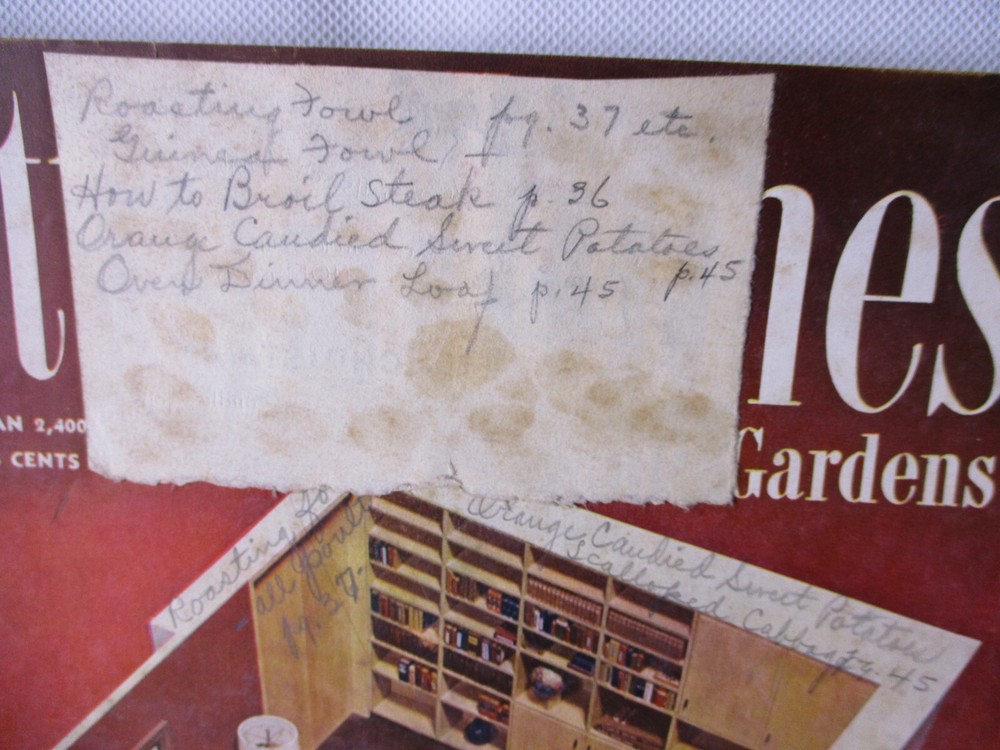 Roasting Fowl pg. 37 etc.
Guinea Fowl
How to Broil Steak p. 36
Orange Candied Sweet Potatoes p.45
Oven Dinner Loaf p.45
t
nes
AN 2,400
CENTS
Gardens
Roasting for
all Poultry
pg. 37.
Orange Candied Sweet Potatoes
Scalloped Cabbage pg. 45